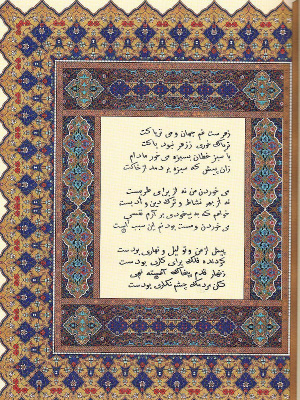 زهر ست غم جهان و می تریاکت
تریاک خوری ز زهر نبود باکت
با سبز خطان بسبزه می خور مادام
زان پیش که سبزه بر دمد از خاکت
می خوردن من نه از برای طربست
نه از بهر نشاط و ترک دین و ادبست
خواهم که به بیخودی بر آرم نفسی
می خوردن و مست بودنم این سبب
پیش از من و تو لیل و نهاری بودست
گردنده فلک برای کاری بودست
زنهار قدم بخاک آهسته نهی
کان مردمک چشم نگاری بودست